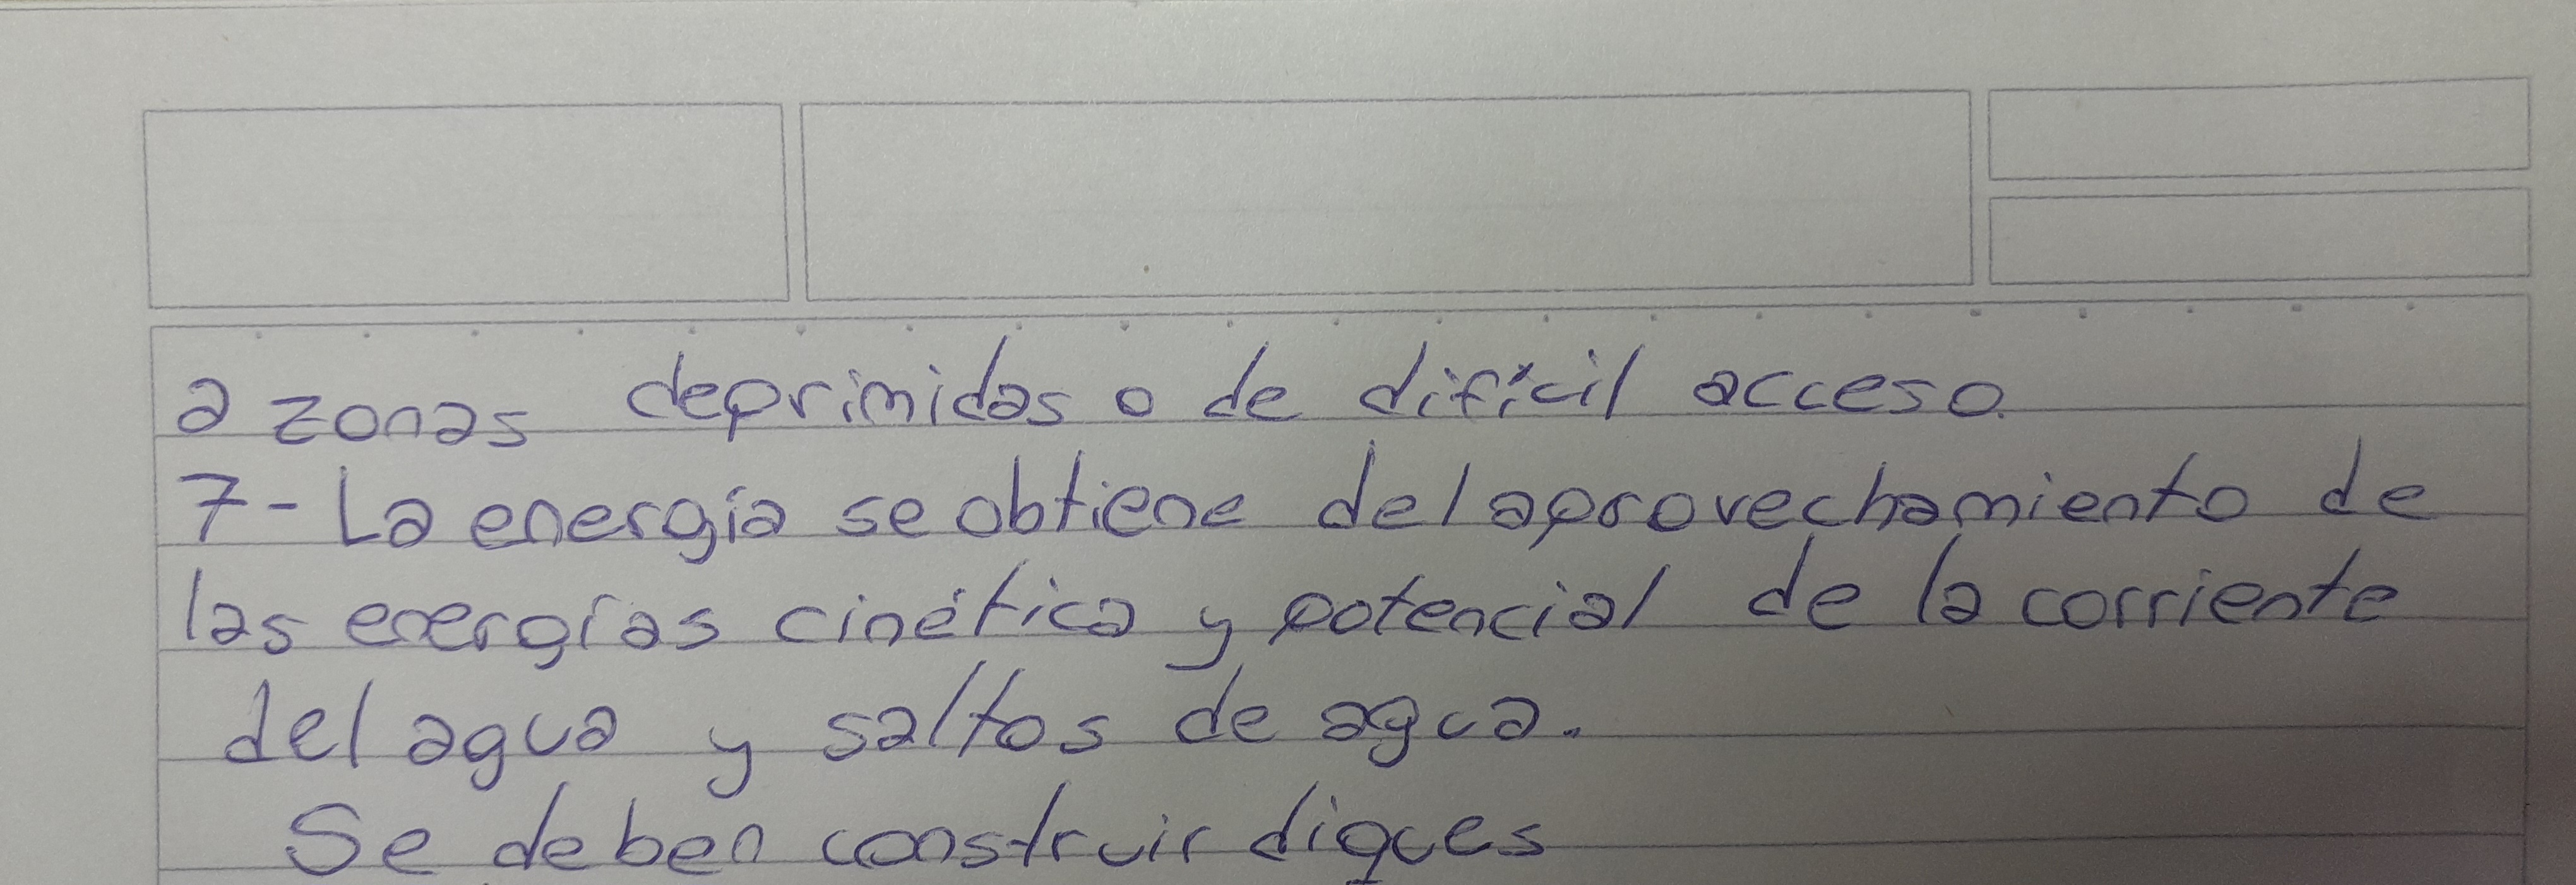 a zonas deprimidas o de difícil acceso.
7- La energía se obtiene del aprovechamiento de
las energías cinética y potencial de la corriente
del agua y saltos de agua.
Se deben construir diques